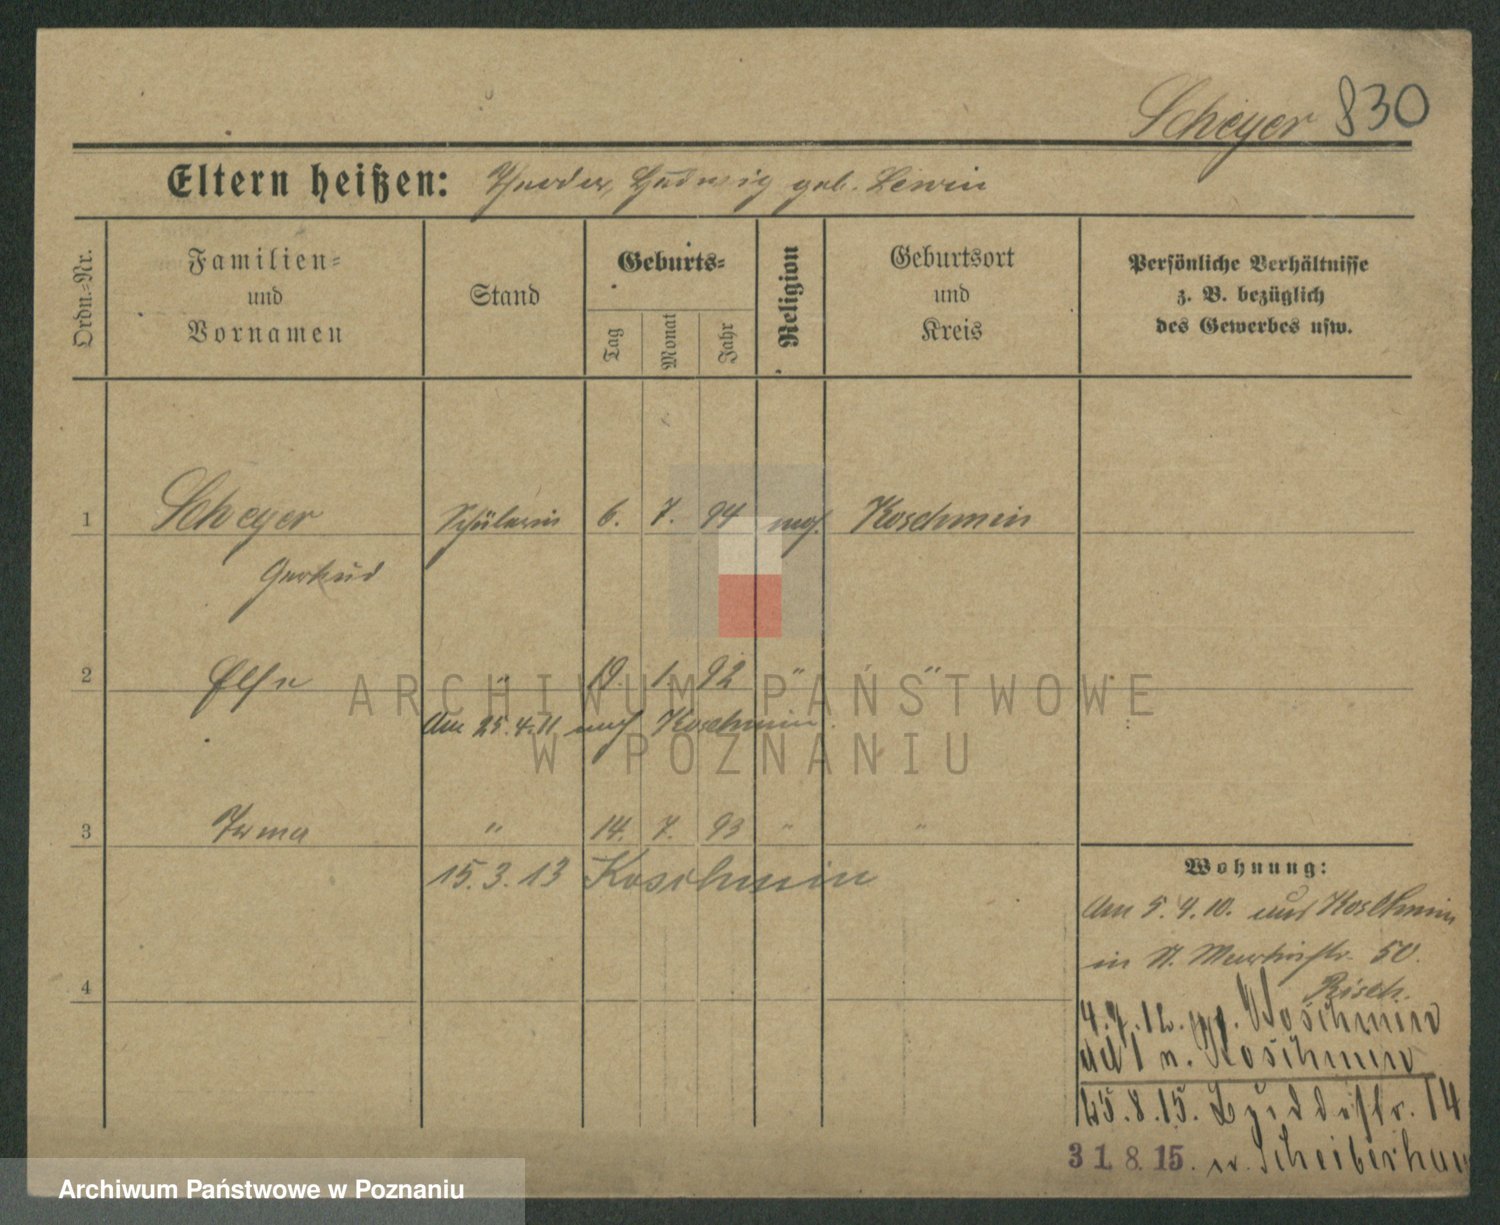 Scheyer 830
Eltern heißen: Theodor, Hedwig geb. Lewin
Ordn.-Nr.
Familien-
und
Vornamen
Stand
Geburts-
Tag
Monat
Jahr
Religion
Geburtsort
und
Kreis
Persönliche Verhältnisse
z. B. bezüglich
des Gewerbes usw.
1 Scheyer Schülerin 6. 7. 94 mos. Koschmin
Gertrud
2 Else " 19. 1. 92 " "
Am 25.4.11 nach Koschmin
3 Irma " 14. 7. 93 " "
15.3.13 Koschmin
4
Wohnung:
Am 5.4.10. aus Koschmin
in St. Martinstr. 50.
4.7.12. Koschmin
ad 1 n. Koschmin
25.8.15. 14
31.8.15. Schreiberhau
ARCHIWUM PAŃSTWOWE
W POZNANIU
Archiwum Państwowe w Poznaniu